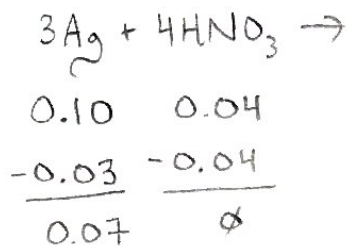 3Ag + 4HNO₃ →
0.10 0.04
-0.03 -0.04
0.07 ∅